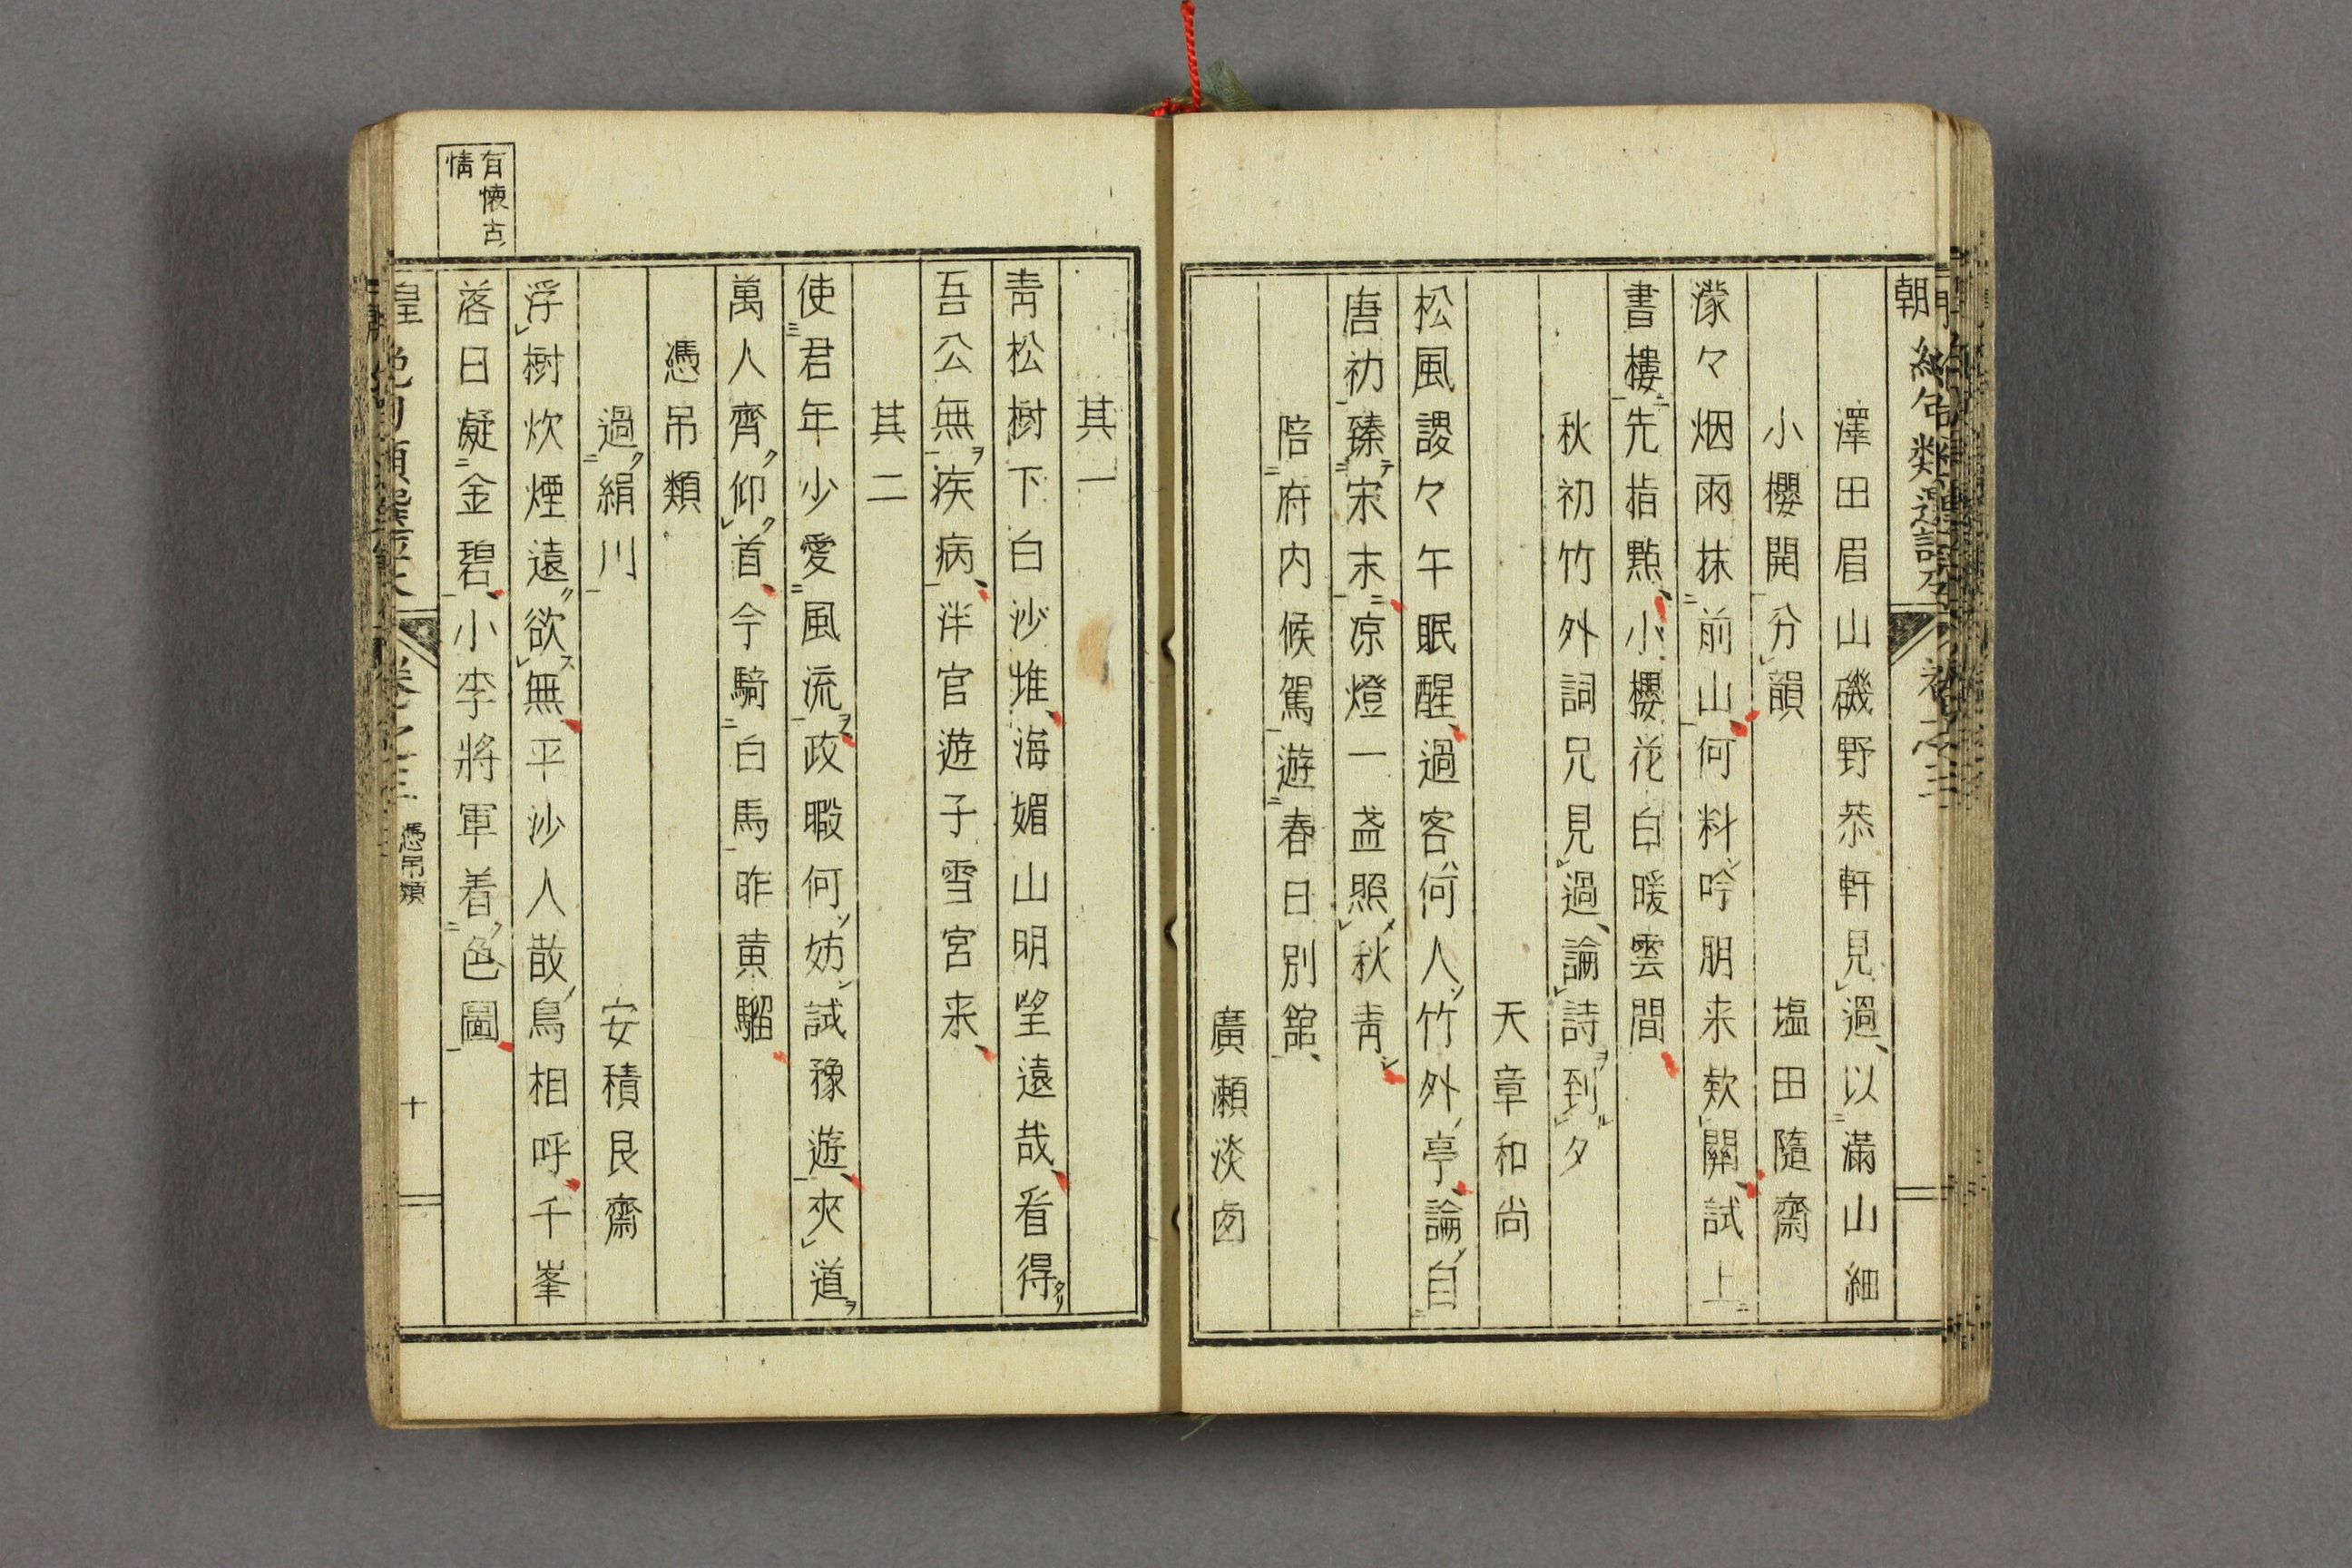 澤田眉山磯野恭軒見過以滿山細
小櫻開分韻　塩田隨齋
濛々烟雨抹前山何料吟朋来欵關試上
書樓先指㸃小櫻花白暖雲間
秋初竹外詞兄見過論詩到夕
天章和尚
松風謖々午眠醒過客何人竹外亭論自
唐初臻宋末凉燈一盞照秋青
陪府内候駕遊春日別舘
廣瀬淡囱
其一
青松樹下白沙堆海媚山明望遠哉看得
吾公無疾病泮官遊子雪宮来
其二
使君年少愛風流政暇何妨試豫遊夾道
萬人齊仰首今騎白馬昨黄騮
憑吊類
過絹川
安積艮齋
浮樹炊煙遠欲無平沙人散鳥相呼千峯
有懐古
情
落日凝金碧小李將軍着色圖
憑吊類
十